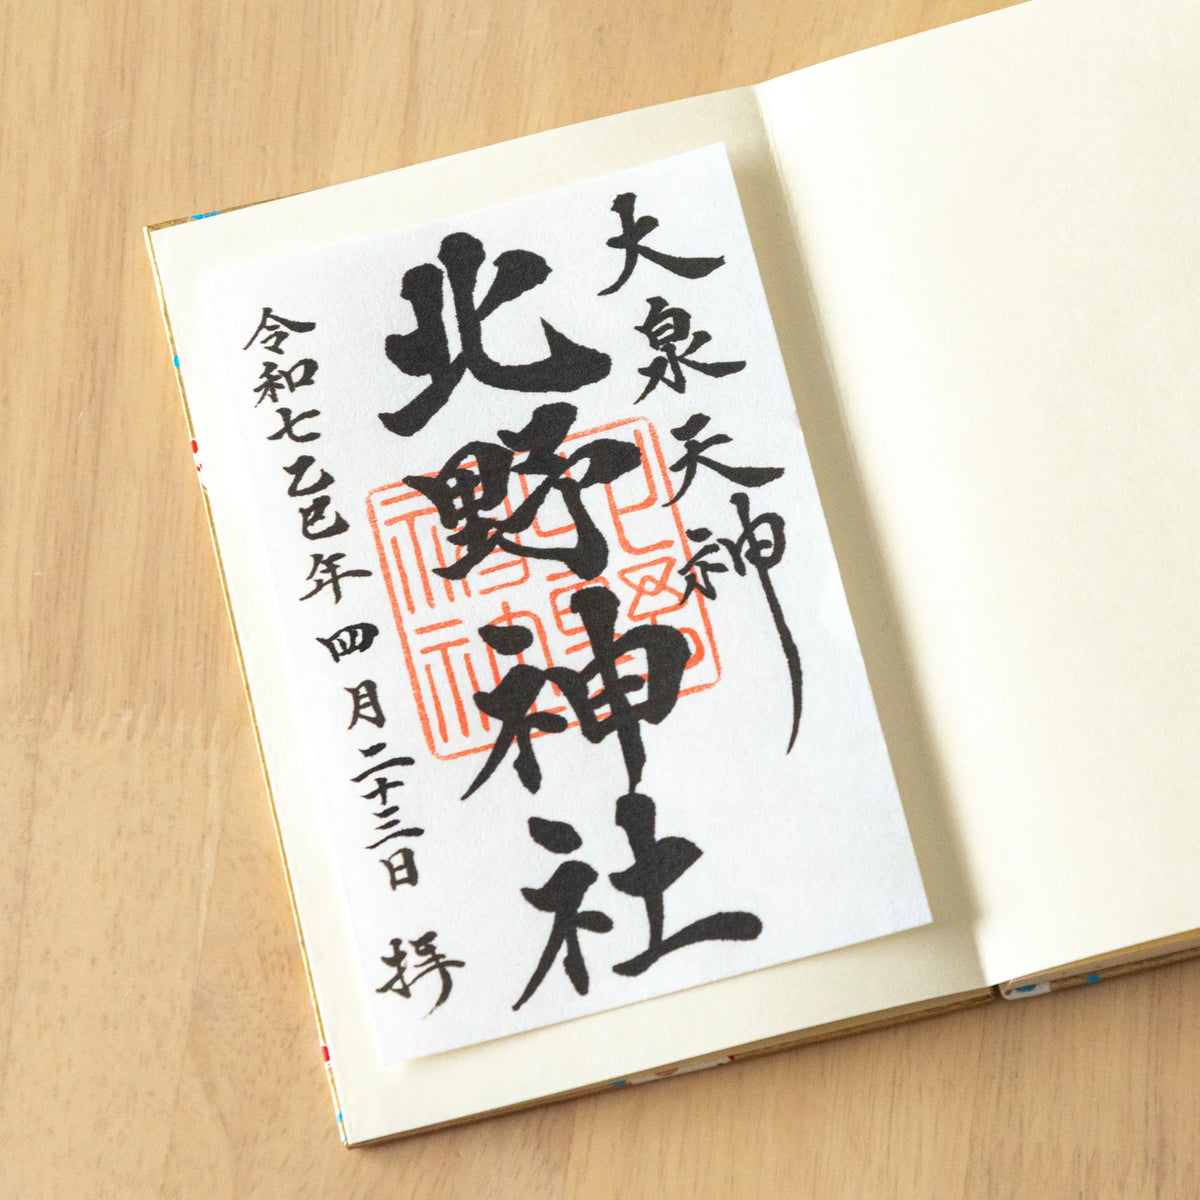 大泉天神
北野神社
令和七乙巳年四月二十三日 拝
北野神社